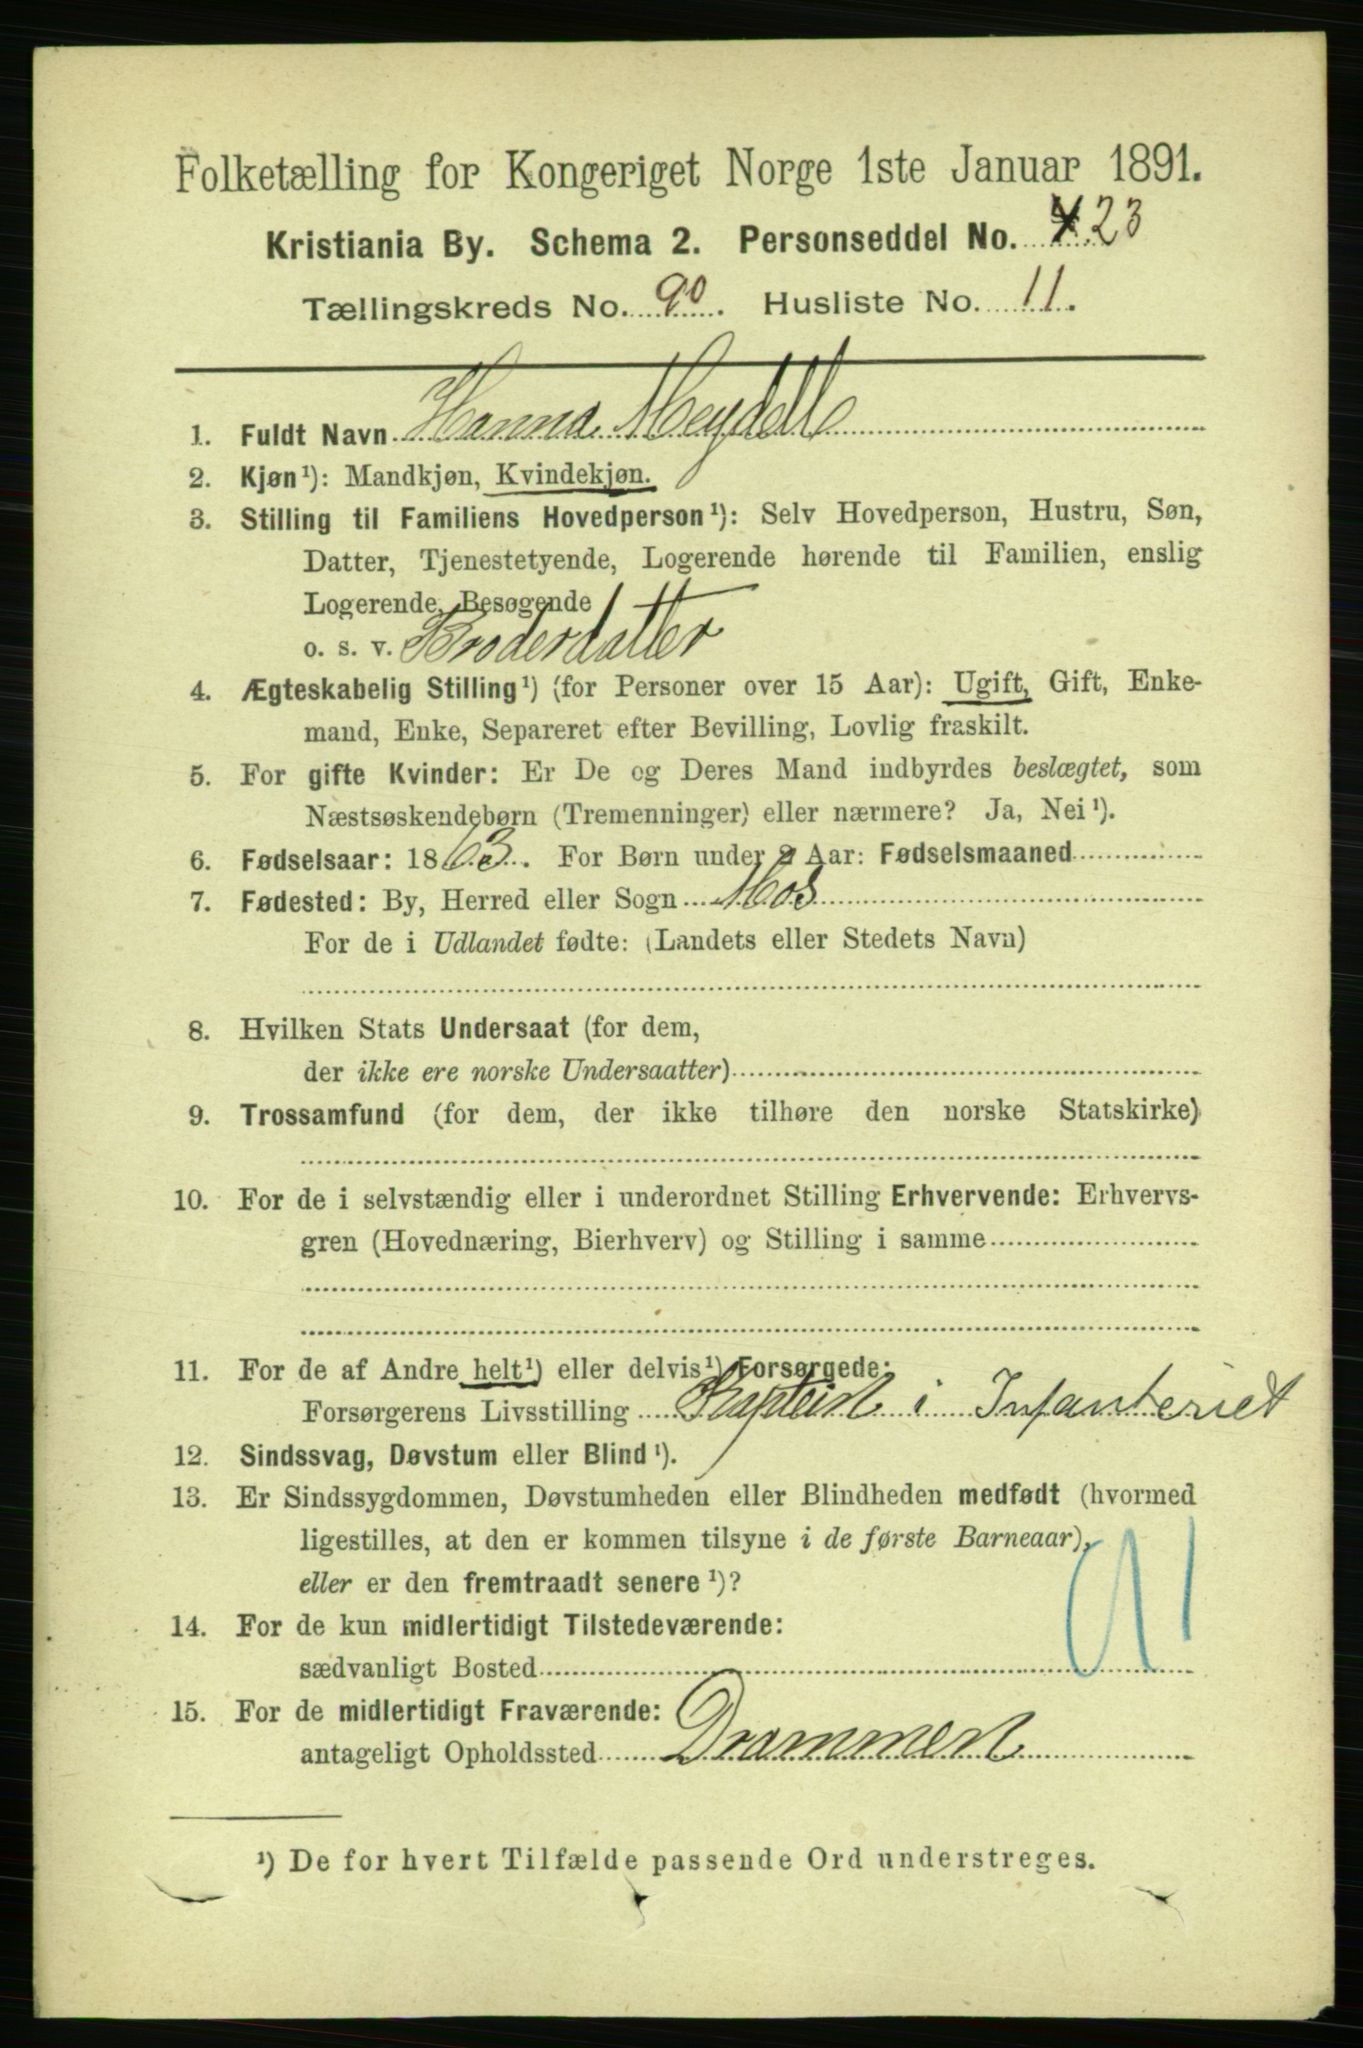 Folketælling for Kongeriget Norge 1ste Januar 1891.
Kristiania By. Schema 2. Personseddel No. 23
Tællingskreds No. 90. Husliste No. 11.
1. Fuldt Navn Hanna Meydell
2. Kjøn¹): Mandkjøn, Kvindekjøn.
3. Stilling til Familiens Hovedperson¹): Selv Hovedperson, Hustru, Søn,
Datter, Tjenestetyende, Logerende hørende til Familien, enslig
Logerende, Besøgende
o. s. v. Broderdatter
4. Ægteskabelig Stilling¹) (for Personer over 15 Aar): Ugift, Gift, Enke-
mand, Enke, Separeret efter Bevilling, Lovlig fraskilt.
5. For gifte Kvinder: Er De og Deres Mand indbyrdes beslægtet, som
Næstsøskendebørn (Tremenninger) eller nærmere? Ja, Nei¹).
6. Fødselsaar: 1863. For Børn under 2 Aar: Fødselsmaaned
7. Fødested: By, Herred eller Sogn Mos
For de i Udlandet fødte: (Landets eller Stedets Navn)
8. Hvilken Stats Undersaat (for dem,
der ikke ere norske Undersaatter)
9. Trossamfund (for dem, der ikke tilhøre den norske Statskirke)
10. For de i selvstændig eller i underordnet Stilling Erhvervende: Erhvervs-
gren (Hovednæring, Bierhverv) og Stilling i samme
11. For de af Andre helt¹) eller delvis¹) Forsørgede:
Forsørgerens Livsstilling Kaptein i Infanteriet
12. Sindssvag, Døvstum eller Blind¹).
13. Er Sindssygdommen, Døvstumheden eller Blindheden medfødt (hvormed
ligestilles, at den er kommen tilsyne i de første Barneaar),
eller er den fremtraadt senere¹)?
91
14. For de kun midlertidigt Tilstedeværende:
sædvanligt Bosted
15. For de midlertidigt Fraværende:
antageligt Opholdssted Drammen
¹) De for hvert Tilfælde passende Ord understreges.